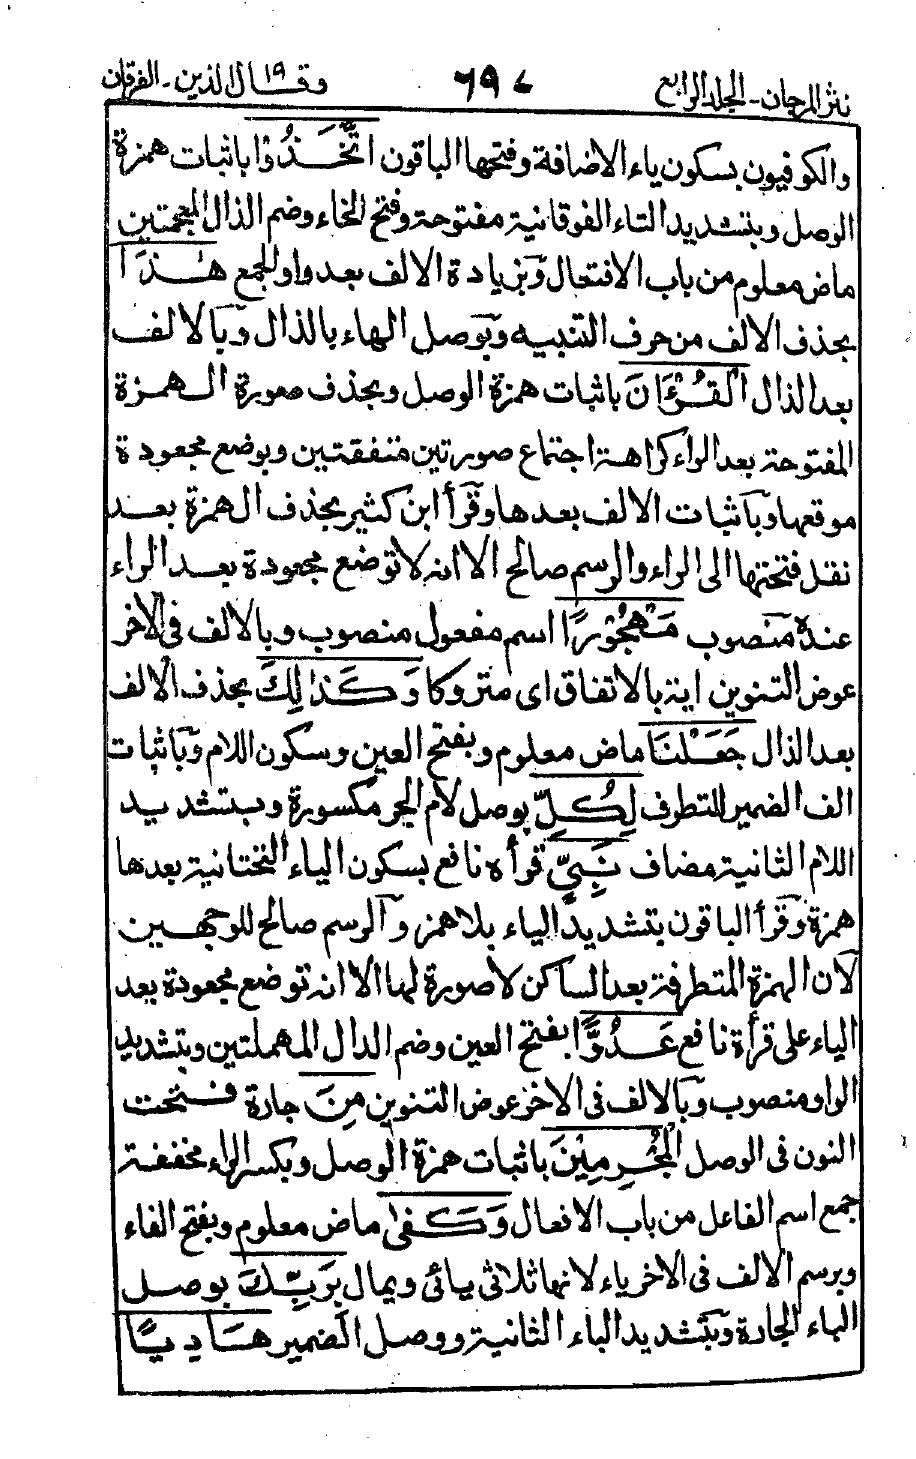 نثر المرجان - الجلد الرابع ٦٩٧ وقال الذين ١٩ - الفرقان
والكوفيون بسكون ياء الاضافة وفتحها الباقون اتَّخَذُوْا باثبات همزة
الوصل وبتشديد التاء الفوقانية مفتوحة وفتح الخاء وضم الذال المعجمتين
ماض معلوم من باب الافتعال وبزيادة الالف بعد واو الجمع هٰذَا
بحذف الالف من حرف التنبيه وبوصل الهاء بالذال وبالالف
بعد الذال الْقُرْءَانَ باثبات همزة الوصل وبحذف صورة الهمزة
المفتوحة بعد الراء كراهة اجتماع صورتين متفقتين وبوضع مجعودة
موقعها وباثبات الالف بعدها وقرأ ابن كثير بحذف الهمزة بعد
نقل فتحتها الى الراء والرسم صالح الا انه لا توضع مجعودة بعد الراء
عنده منصوب مَهْجُوْرًا اسم مفعول منصوب وبالالف فى الاخر
عوض التنوين اية بالاتفاق اى متروكا وَكَذٰلِكَ بحذف الالف
بعد الذال جَعَلْنَا ماض معلوم وبفتح العين وسكون اللام وباثبات
الف الضمير للتطرف لِكُلِّ بوصل لام الجر مكسورة وبتشديد
اللام الثانية مضاف نَبِيٍّ قرأه نافع بسكون الياء التحتانية بعدها
همزة وقرأ الباقون بتشديد الياء بلا همز والرسم صالح للوجهين
لان الهمزة المتطرفة بعد الساكن لا صورة لها الا انه توضع مجعودة بعد
الياء على قرأة نافع عَدُوًّا بفتح العين وضم الدال المهملتين وبتشديد
الواو منصوب وبالالف فى الاخر عوض التنوين مِنَ جارة فتحت
النون فى الوصل الْمُجْرِمِيْنَ باثبات همزة الوصل وبكسر الراء مخففة
جمع اسم الفاعل من باب الافعال وَكَفٰى ماض معلوم وبفتح الفاء
وبرسم الالف فى الاخر ياء لانها ثلاثى يائى ويمال بِرَبِّكَ بوصل
الباء الجارة وبتشديد الباء الثانية ووصل الضمير هَادِيًا